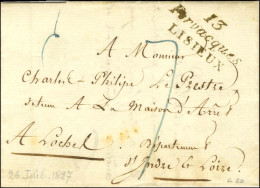 13
Fervacques
LISIEUX
A Monsieur
Charles Philipe Le Prestre
detenu A La Maison d'Arrêt
A Loches
Département
d'Indre & Loire
26 Juil. 1827